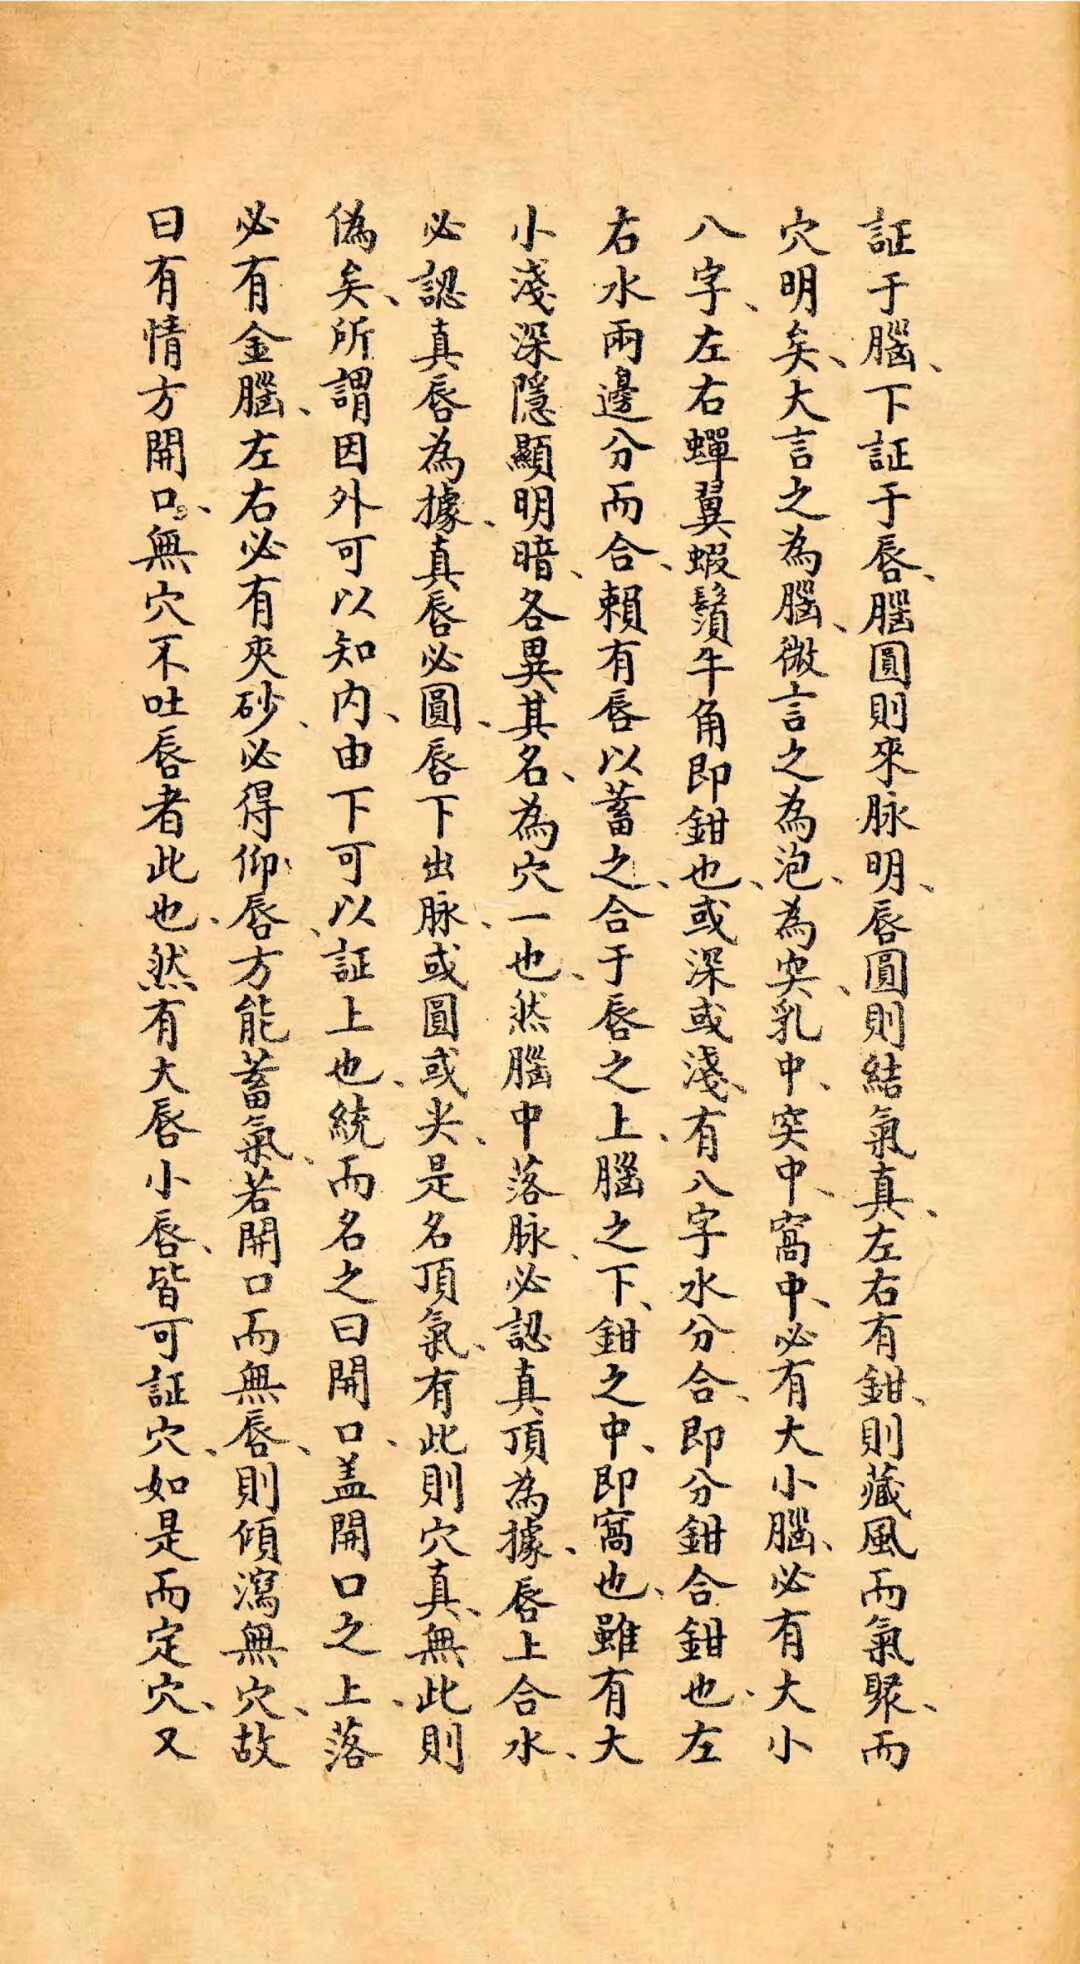 証于腦、下証于唇、腦圓則來脉明、唇圓則結氣真、左右有鉗、則藏風而氣聚、而
穴明矣、大言之為腦、微言之為泡、為突、乳中、突中、窩中、必有大小腦、必有大小
八字、左右蟬翼蝦鬚牛角即鉗也、或深或淺、有八字水分合、即分鉗合鉗也、左
右水兩邊分而合、賴有唇以蓄之、合于唇之上、腦之下、鉗之中、即窩也、雖有大
小淺深隱顯明暗、各異其名、為穴一也、然腦中落脉、必認真頂為據、唇上合水、
必認真唇為據、真唇必圓、唇下出脉、或圓或尖、是名頂氣、有此則穴真、無此則
偽矣、所謂因外可以知内、由下可以証上也、統而名之曰開口、盖開口之上、落
必有金腦、左右必有夾砂、必得仰唇、方能蓄氣、若開口而無唇、則傾瀉無穴、故
曰有情方開口、無穴不吐唇者此也、然有大唇小唇、皆可証穴、如是而定穴、又